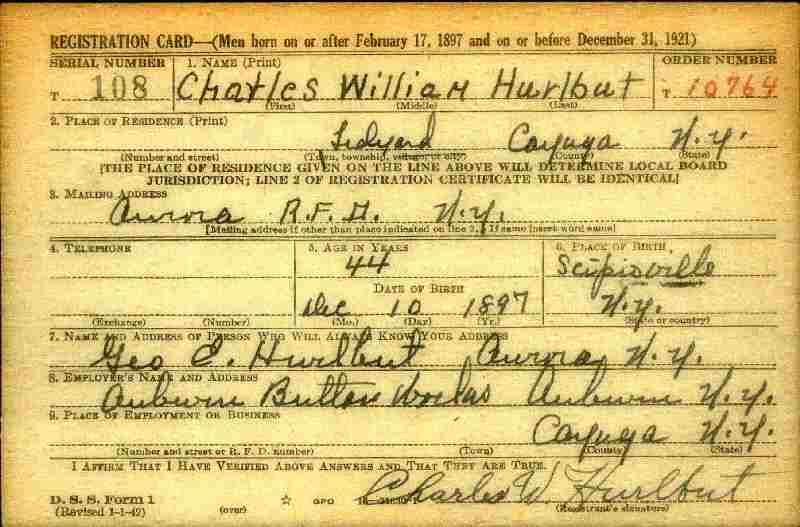 REGISTRATION CARD—(Men born on or after February 17, 1897 and on or before December 31, 1921)
SERIAL NUMBER 1. NAME (Print) ORDER NUMBER
T 108 Charles William Hurlbut T 10764
(First) (Middle) (Last)
2. PLACE OF RESIDENCE (Print)
Ledyard Cayuga N.Y.
(Number and street) (Town, township, village, or city) (County) (State)
[THE PLACE OF RESIDENCE GIVEN ON THE LINE ABOVE WILL DETERMINE LOCAL BOARD
JURISDICTION; LINE 2 OF REGISTRATION CERTIFICATE WILL BE IDENTICAL]
3. MAILING ADDRESS
Aurora R.F.D. N.Y.
[Mailing address if other than place indicated on line 2. If same insert word same]
4. TELEPHONE 5. AGE IN YEARS 6. PLACE OF BIRTH
44 Scipioville
DATE OF BIRTH
Dec 10 1897 N.Y.
(Exchange) (Number) (Mo.) (Day) (Yr.) (State or country)
7. NAME AND ADDRESS OF PERSON WHO WILL ALWAYS KNOW YOUR ADDRESS
Geo E. Hurlbut Aurora N.Y.
8. EMPLOYER'S NAME AND ADDRESS
Auburn Button Works Auburn N.Y.
9. PLACE OF EMPLOYMENT OR BUSINESS
Cayuga N.Y.
(Number and street or R. F. D. number) (Town) (County) (State)
I AFFIRM THAT I HAVE VERIFIED ABOVE ANSWERS AND THAT THEY ARE TRUE.
Charles W. Hurlbut
D. S. S. Form 1 ☆ GPO
(Revised 1-1-42) (over) (Registrant's signature)